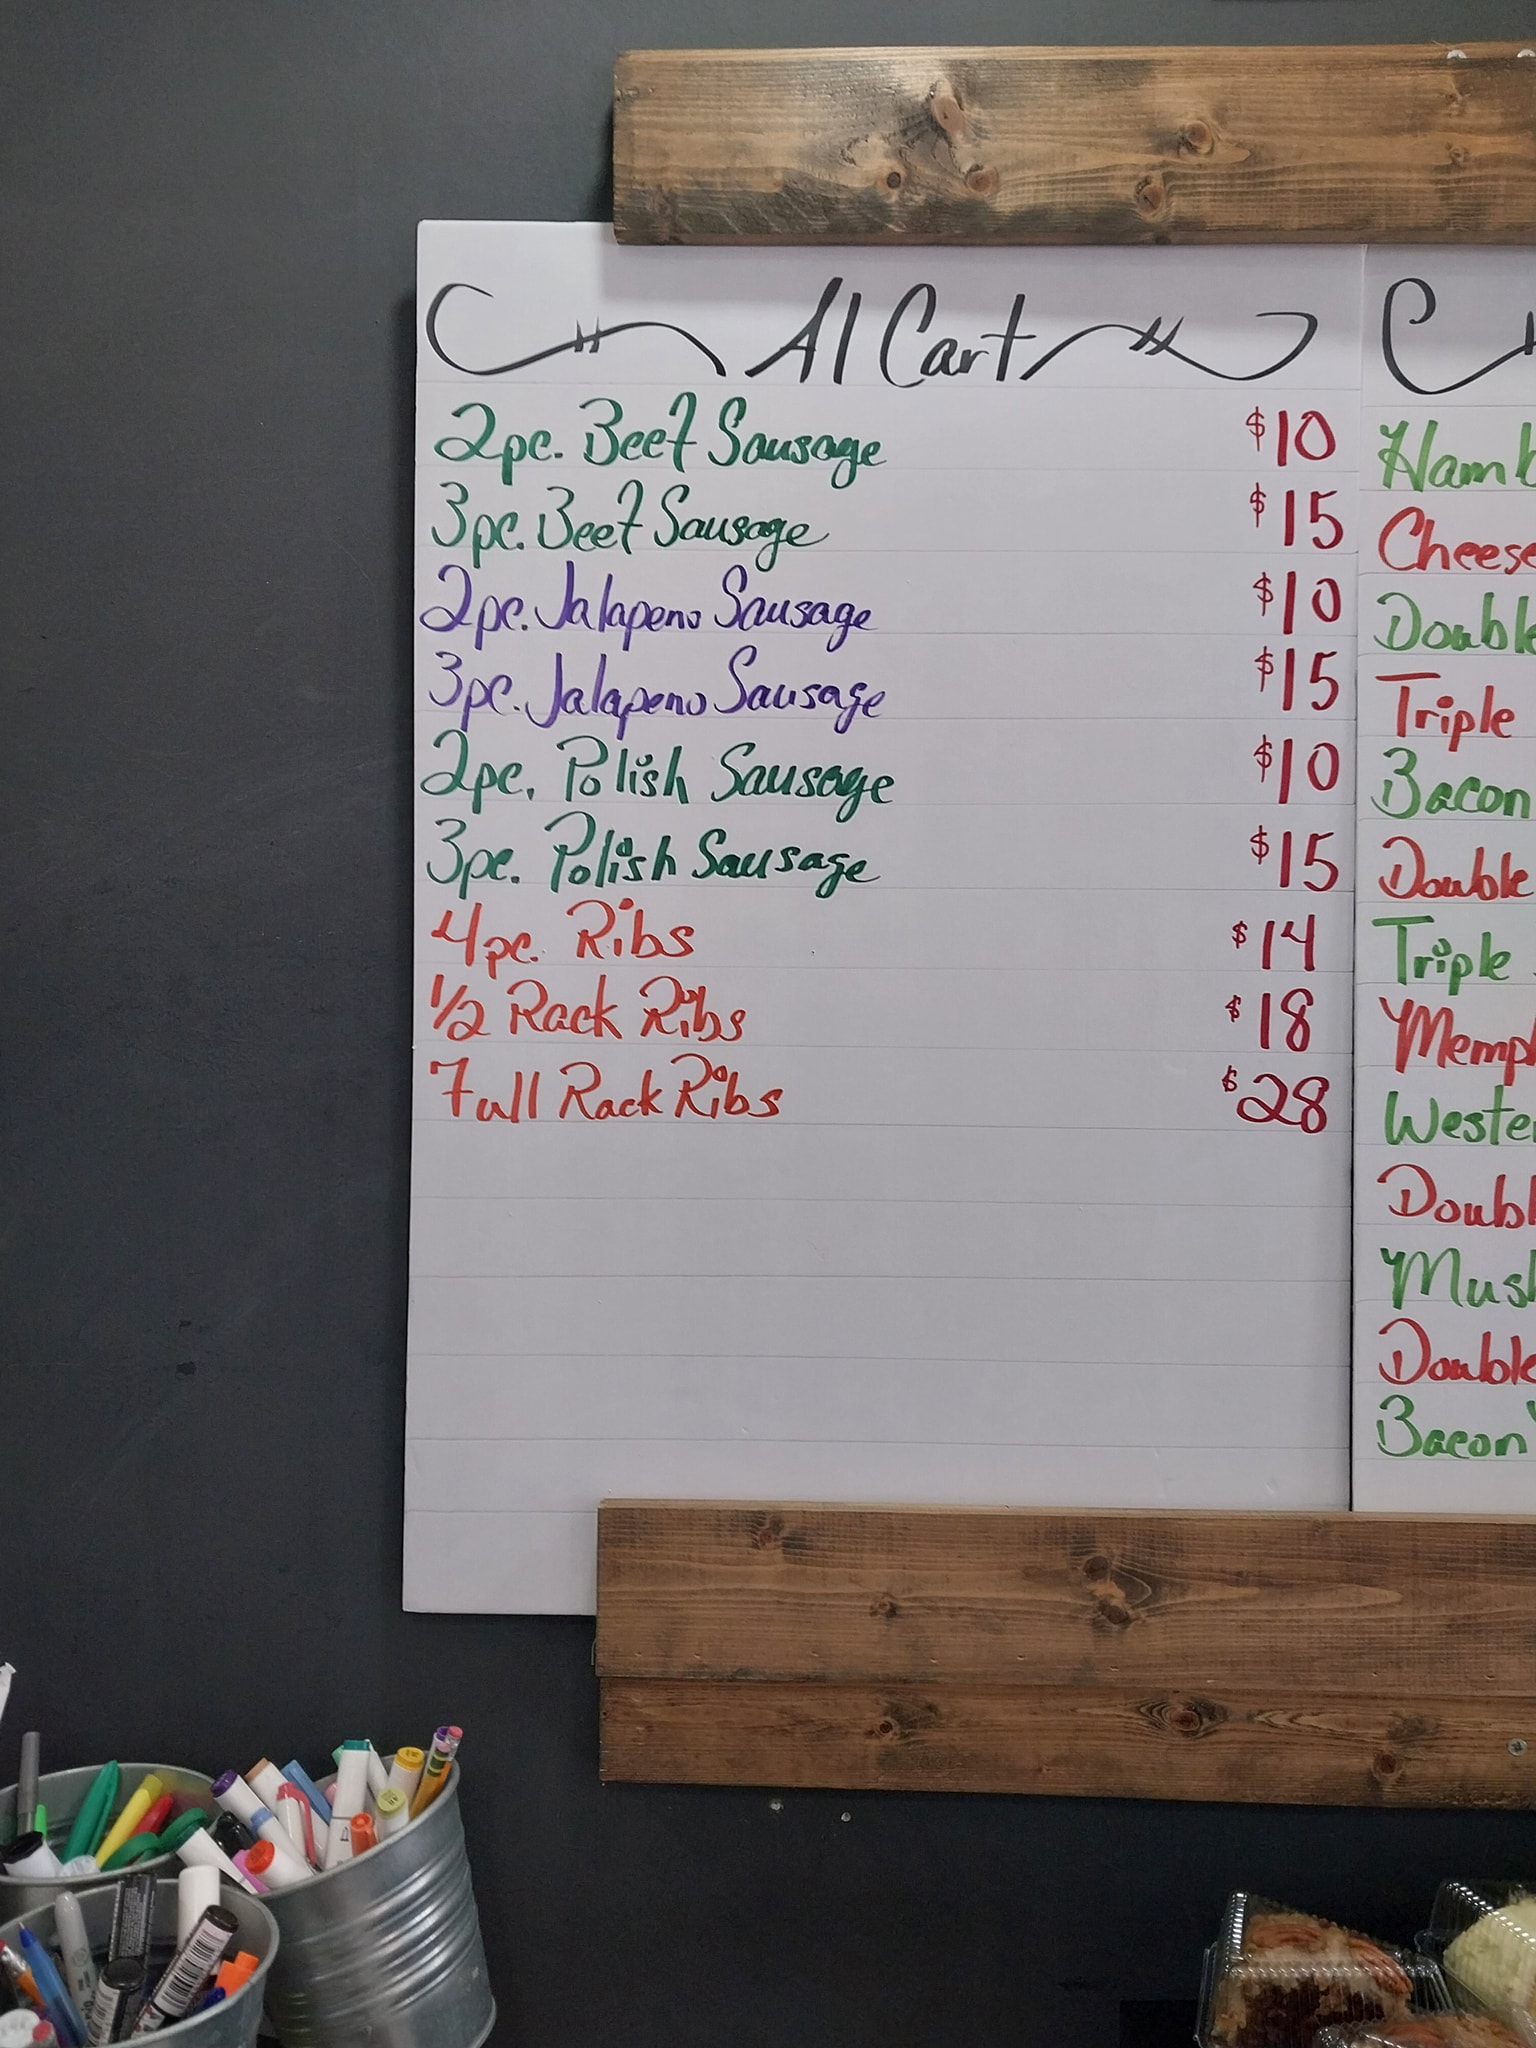 Al Cart
2pc. Beef Sausage $10
3pc. Beef Sausage $15
2pc. Jalapeno Sausage $10
3pc. Jalapeno Sausage $15
2pc. Polish Sausage $10
3pc. Polish Sausage $15
4pc. Ribs $14
1/2 Rack Ribs $18
Full Rack Ribs $28
Hamb
Cheese
Double
Triple
Bacon
Double
Triple
Memph
Wester
Doubl
Mush
Double
Bacon